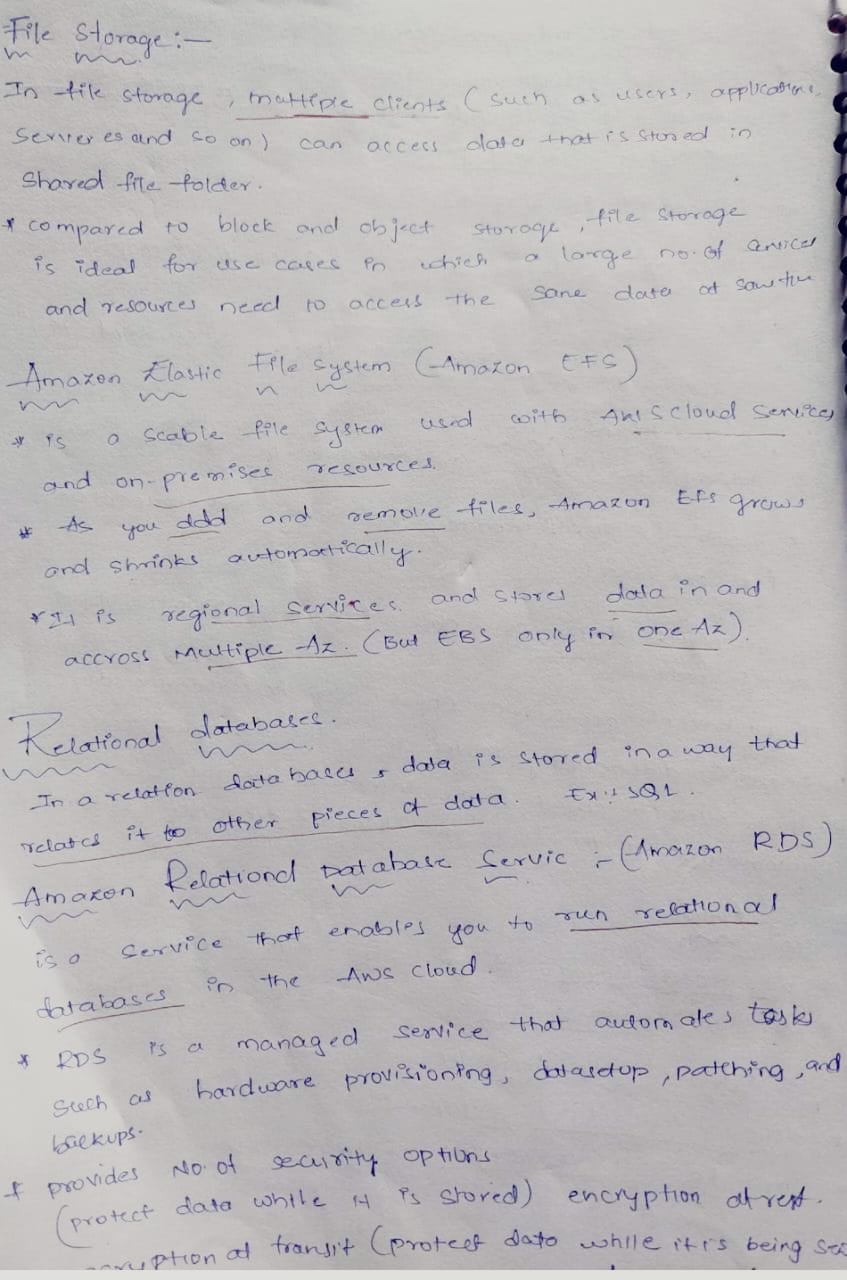 File Storage:-
In file storage, multiple clients (such as users, applications,
Serveres and so on) can access data that is stored in
Shared file folder.
* compared to block and object storage, file storage
is ideal for use cases in which a large no. of services
and resources need to access the same data at same time
Amazon Elastic File system (Amazon EFS)
* is a scable file system used with AWS cloud services
and on-premises resources.
* As you add and remove files, Amazon EFS grows
and shrinks automatically.
* It is regional services. and stores data in and
accross Multiple Az. (But EBS only in one Az).
Relational databases.
In a relation databases, data is stored in a way that
relates it to other pieces of data. Ex:- SQL.
Amazon Relational Database Servic :- (Amazon RDS)
is a service that enables you to run relational
databases in the AWS cloud.
* RDS is a managed service that automates tasks
such as hardware provisioning, datasetup, patching, and
backups.
* provides No. of security options
(protect data while it is stored) encryption at rest.
encryption at transit (protect data while it is being